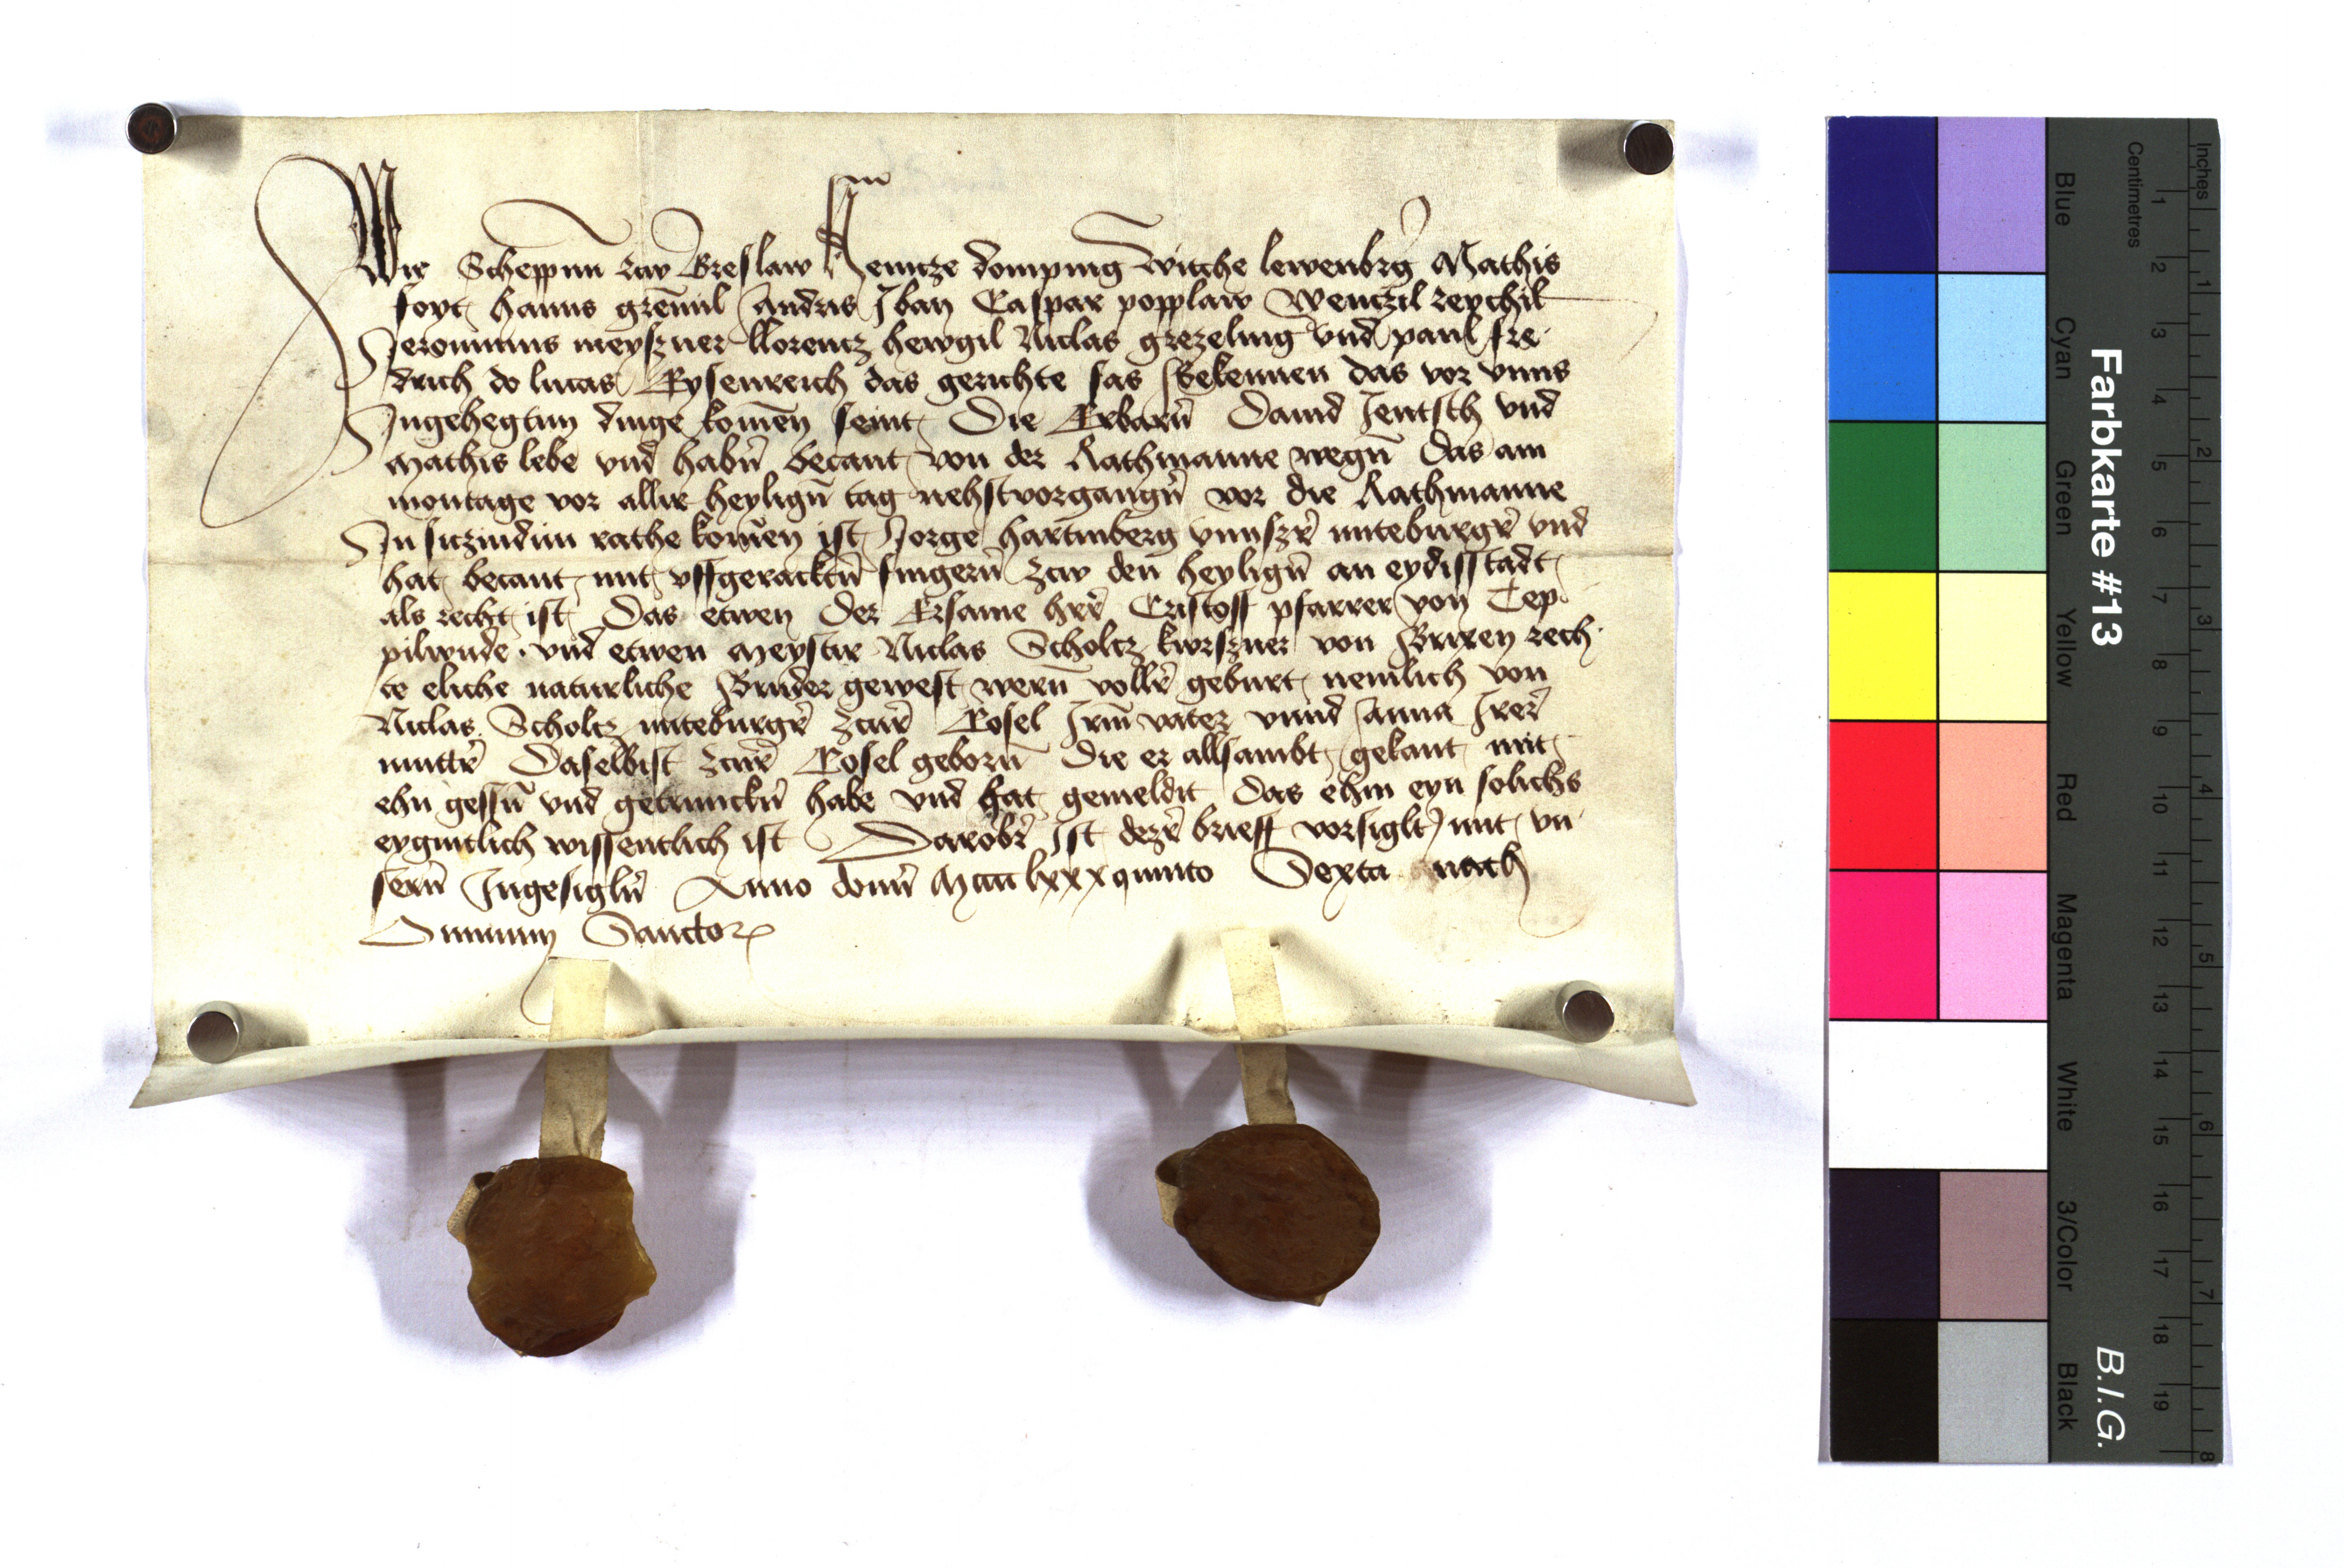 Wir Scheppnn zcw Breslaw Heintze dompnig Witche lewenbrg Mathis
foyt hanns gremil Andris Iban Caspar popplaw Wentzil reychil
Jeronimus meyszner llorentz hewgil Niclas grezeling vnd paul fre
drich do lucas Eysenreich das gerichte sas Bekennen das vor vnns
Ingehegtim dinge komen seint Die Erbarn Dauid Jentsch vnd
Mathis lebe vnd habn becant von der Rathmanne wegn Das am
montage vor allir heylign tag nehstvorgangn vor die Rathmanne
In siczindim rathe komen ist Jorge hartinberg vnnszr miteburgr vnd
hat becant mit vffgeracktn fingern zcw den heylign an eydisstadt
als recht ist Das etwen der Ersame herr Cristoff pfarrer von Tep
pilwude vnd etwen Meystir Niclas Scholtz kwrszner von Brixen rech
te eliche naturliche Bruder gewest wern vollr geburt nemlich von
Niclas Scholtz miteburgr zcur Cosel Irm vater vnnd Anna Irer
muttr Daselbist zcur Cosel geborn Die er allsambt gekant mit
ehn gessn vnd getrunckn habe vnd hat gemeldit Das ehm eyn solichs
eygintlich wissentlich ist Darobr Ist dezr brieff vorsiglt mit vn
sern Ingesigln Anno domi Mcccclxxxquinto Sexta nach
Omnium Sanctor
Farbkarte #13
B.I.G.
Blue Cyan Green Yellow Red Magenta White 3/Color Black
Centimetres
1 2 3 4 5 6 7 8 9 10 11 12 13 14 15 16 17 18 19
Inches
1 2 3 4 5 6 7 8